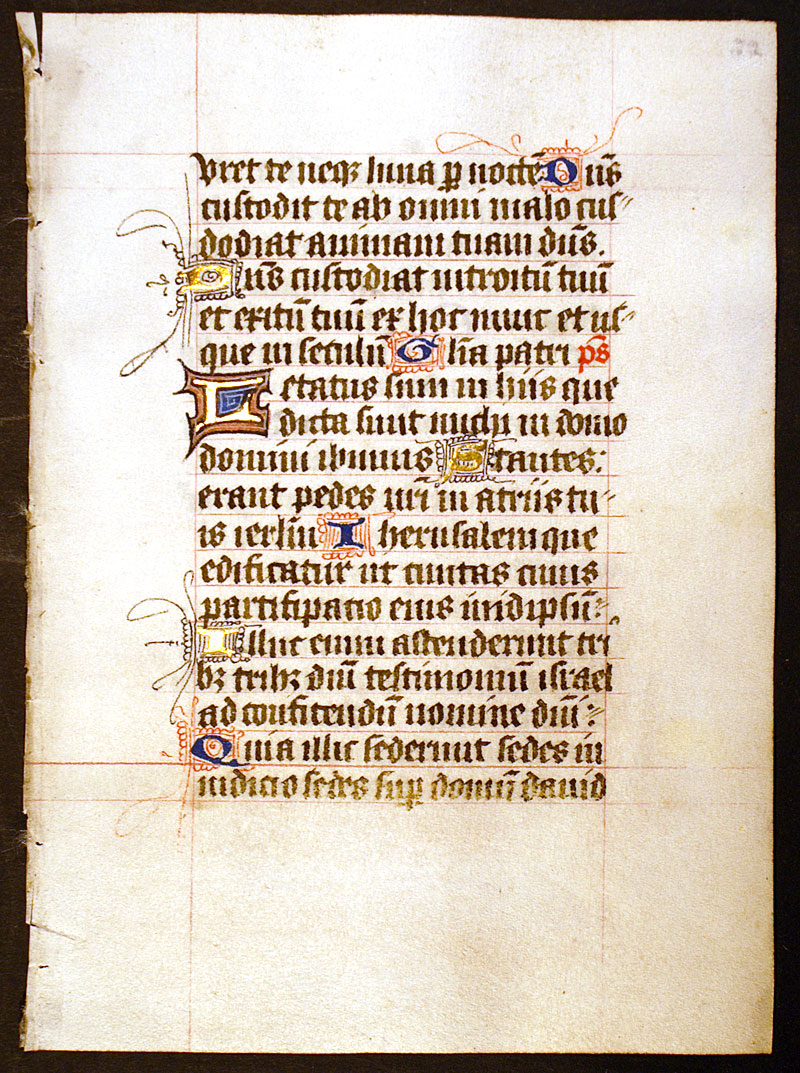 vret te neqꝫ luna ꝑ noctē Dn̄s
custodit te ab omni malo cus⸗
dodiat animam tuam dn̄s.
Dn̄s custodiat introitū tuū
et exitū tuū ex hoc nunc et us⸗
que in seculū Gl̄ia patri p̄s
Letatus sum in hiis que
dicta sunt michi in domo
domini ibimus Stantes:
erant pedes nr̄i in atriis tu⸗
is ierl̄m Iherusalem que
edificatur ut ciuitas cuius
participatio eius inidipsū:
Illuc enim ascenderunt tri
bꝫ tribꝫ dn̄i testimoniū israel
ad confitendū nomine dn̄i:
Quia illic sederunt sedes in
iudicio sedes suꝑ domū dauid